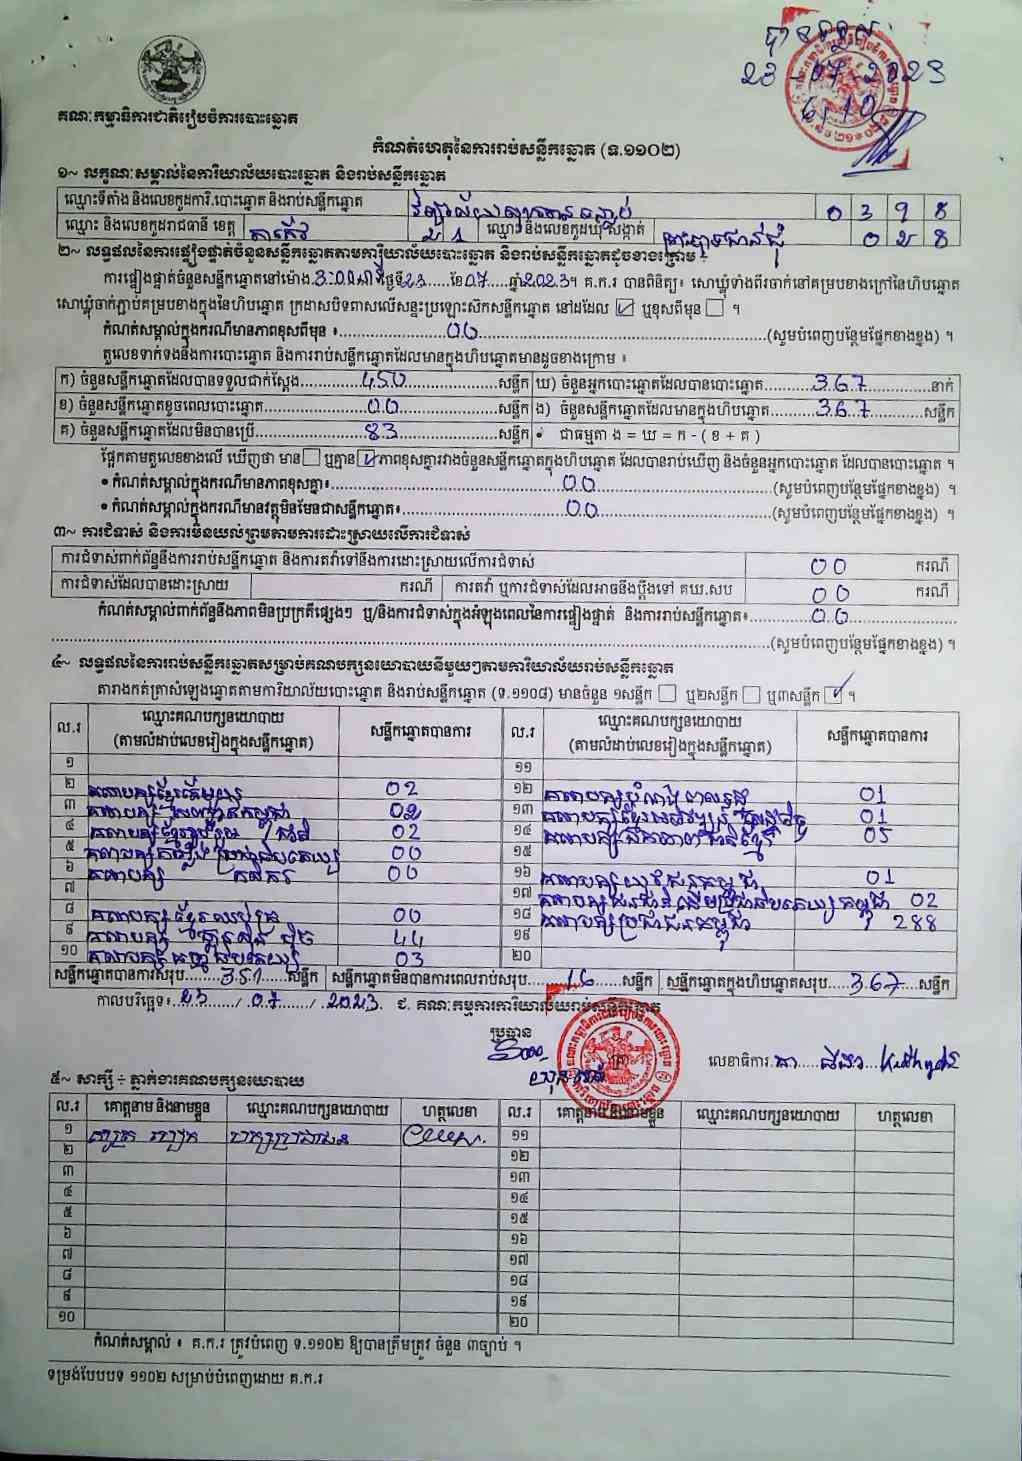 បានទទួល
23-07-2023
6:10
គណៈកម្មាធិការជាតិរៀបចំការបោះឆ្នោត
កំណត់ហេតុនៃការរាប់សន្លឹកឆ្នោត (ទ.១១០២)
១~ លក្ខណៈសម្គាល់នៃការិយាល័យបោះឆ្នោត និងរាប់សន្លឹកឆ្នោត
ឈ្មោះទីតាំង និងលេខកូដការិ.បោះឆ្នោត និងរាប់សន្លឹកឆ្នោត វិទ្យាល័យ 0 3 9 8
ឈ្មោះ និងលេខកូដរាជធានី ខេត្ត តាកែវ 2 1 ឈ្មោះ និងលេខកូដឃុំ សង្កាត់ ព្រះបាទជាន់ជុំ 0 2 8
២~ លទ្ធផលនៃការផ្ទៀងផ្ទាត់ចំនួនសន្លឹកឆ្នោតតាមការិយាល័យបោះឆ្នោត និងរាប់សន្លឹកឆ្នោតដូចខាងក្រោម ៖
ការផ្ទៀងផ្ទាត់ចំនួនសន្លឹកឆ្នោតនៅម៉ោង 3:00 ថ្ងៃទី 23 ខែ 07 ឆ្នាំ 2023 ។ គ.ក.រ បានពិនិត្យ៖ សោឃ្លុំទាំងពីរចាក់នៅគម្របខាងក្រៅនៃហិបឆ្នោត
សោឃ្លុំចាក់ភ្ជាប់គម្របខាងក្នុងនៃហិបឆ្នោត ក្រដាសបិទពាសលើសន្ទះប្រឡោះស៊កសន្លឹកឆ្នោត នៅដដែល ☑ ឬខុសពីមុន ☐ ។
កំណត់សម្គាល់ក្នុងករណីមានភាពខុសពីមុន ៖ 00 (សូមបំពេញបន្ថែមផ្នែកខាងខ្នង) ។
តួលេខទាក់ទងនឹងការបោះឆ្នោត និងការរាប់សន្លឹកឆ្នោតដែលមានក្នុងហិបឆ្នោតមានដូចខាងក្រោម ៖
ក) ចំនួនសន្លឹកឆ្នោតដែលបានទទួលជាក់ស្តែង 450 សន្លឹក ឃ) ចំនួនអ្នកបោះឆ្នោតដែលបានបោះឆ្នោត 367 នាក់
ខ) ចំនួនសន្លឹកឆ្នោតខូចពេលបោះឆ្នោត 00 សន្លឹក ង) ចំនួនសន្លឹកឆ្នោតដែលមានក្នុងហិបឆ្នោត 367 សន្លឹក
គ) ចំនួនសន្លឹកឆ្នោតដែលមិនបានប្រើ 83 សន្លឹក • ជាធម្មតា ង = ឃ = ក - ( ខ + គ )
ផ្អែកតាមតួលេខខាងលើ ឃើញថា មាន ☐ ឬគ្មាន ☑ ភាពខុសគ្នារវាងចំនួនសន្លឹកឆ្នោតក្នុងហិបឆ្នោត ដែលបានរាប់ឃើញ និងចំនួនអ្នកបោះឆ្នោត ដែលបានបោះឆ្នោត ។
• កំណត់សម្គាល់ក្នុងករណីមានភាពខុសគ្នា៖ 00 (សូមបំពេញបន្ថែមផ្នែកខាងខ្នង) ។
• កំណត់សម្គាល់ក្នុងករណីមានវត្ថុមិនមែនជាសន្លឹកឆ្នោត៖ 00 (សូមបំពេញបន្ថែមផ្នែកខាងខ្នង) ។
៣~ ការជំទាស់ និងការមិនយល់ព្រមតាមការដោះស្រាយលើការជំទាស់
ការជំទាស់ពាក់ព័ន្ធនឹងការរាប់សន្លឹកឆ្នោត និងការតវ៉ាទៅនឹងការដោះស្រាយលើការជំទាស់ 00 ករណី
ការជំទាស់ដែលបានដោះស្រាយ ករណី ការតវ៉ា ឬការជំទាស់ដែលអាចនឹងប្តឹងទៅ គឃ.សប 00 ករណី
កំណត់សម្គាល់ពាក់ព័ន្ធនឹងភាពមិនប្រក្រតីផ្សេងៗ ឬ/និងការជំទាស់ក្នុងអំឡុងពេលនៃការផ្ទៀងផ្ទាត់ និងការរាប់សន្លឹកឆ្នោត៖ 00
(សូមបំពេញបន្ថែមផ្នែកខាងខ្នង) ។
៤~ លទ្ធផលនៃការរាប់សន្លឹកឆ្នោតសម្រាប់គណបក្សនយោបាយនីមួយៗតាមការិយាល័យរាប់សន្លឹកឆ្នោត
តារាងកត់ត្រាសំឡេងឆ្នោតតាមការិយាល័យបោះឆ្នោត និងរាប់សន្លឹកឆ្នោត (ទ.១១០៨) មានចំនួន ១សន្លឹក ☐ ឬ២សន្លឹក ☐ ឬ៣សន្លឹក ☑ ។
ល.រ ឈ្មោះគណបក្សនយោបាយ (តាមលំដាប់លេខរៀងក្នុងសន្លឹកឆ្នោត) សន្លឹកឆ្នោតបានការ ល.រ ឈ្មោះគណបក្សនយោបាយ (តាមលំដាប់លេខរៀងក្នុងសន្លឹកឆ្នោត) សន្លឹកឆ្នោតបានការ
១ ១១
២ គណបក្សខ្មែរតែមួយ 02 ១២ គណបក្ស 01
៣ គណបក្ស 02 ១៣ គណបក្សខ្មែរអភិវឌ្ឍន៍ 01
៤ គណបក្សខ្មែររួបរួមជាតិ 02 ១៤ គណបក្ស 05
៥ គណបក្សកម្លាំងប្រជាធិបតេយ្យ 00 ១៥
៦ គណបក្ស កសិករ 00 ១៦ គណបក្សយុវជនកម្ពុជា 01
៧ ១៧ គណបក្សជនជាតិដើមប្រជាធិបតេយ្យកម្ពុជា 02
៨ គណបក្សខ្មែរឈប់ក្រ 00 ១៨ គណបក្សប្រជាជនកម្ពុជា 288
៩ គណបក្ស ហ្វ៊ុនស៊ិនប៉ិច 44 ១៩
១០ គណបក្ស ប្រជាធិបតេយ្យ 03 ២០
សន្លឹកឆ្នោតបានការសរុប 351 សន្លឹក សន្លឹកឆ្នោតមិនបានការពេលរាប់សរុប 16 សន្លឹក សន្លឹកឆ្នោតក្នុងហិបឆ្នោតសរុប 367 សន្លឹក
កាលបរិច្ឆេទ៖ 23 / 07 / 2023 ជ. គណៈកម្មការការិយាល័យរាប់សន្លឹកឆ្នោត
ប្រធាន
លេខាធិការ
៥~ សាក្សី ÷ ភ្នាក់ងារគណបក្សនយោបាយ
ល.រ គោត្តនាម និងនាមខ្លួន ឈ្មោះគណបក្សនយោបាយ ហត្ថលេខា ល.រ គោត្តនាម និងនាមខ្លួន ឈ្មោះគណបក្សនយោបាយ ហត្ថលេខា
១ បក្សប្រជាជន ១១
២ ១២
៣ ១៣
៤ ១៤
៥ ១៥
៦ ១៦
៧ ១៧
៨ ១៨
៩ ១៩
១០ ២០
កំណត់សម្គាល់ ៖ គ.ក.រ ត្រូវបំពេញ ទ.១១០២ ឱ្យបានត្រឹមត្រូវ ចំនួន ៣ច្បាប់ ។
ទម្រង់បែបបទ ១១០២ សម្រាប់បំពេញដោយ គ.ក.រ